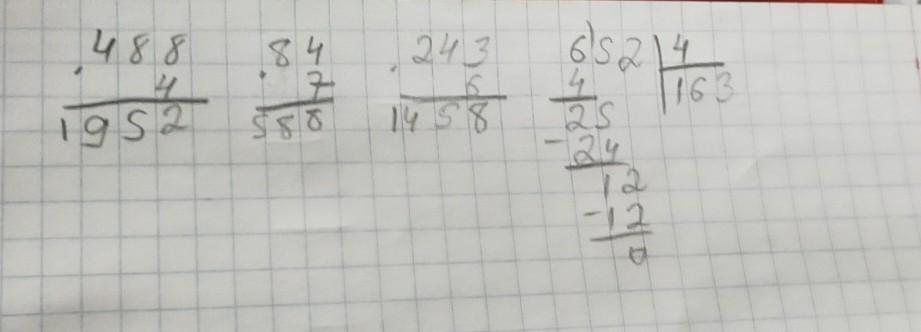 . 488 . 84 . 243 652 4
4 7 6 4 163
1952 588 1458 25
- 24
12
- 12
0